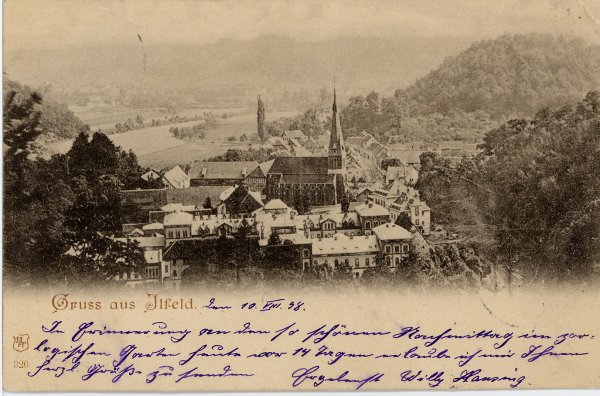 Gruss aus Ilfeld. den 10. VIII. 98.
In Erinnerung an den so schönen Nachmittag im zoo-
logischen Garten heute vor 14 Tagen erlaube ich mir Ihnen
herzl. Grüße zu senden Ergebenst Willy Hansing.
326